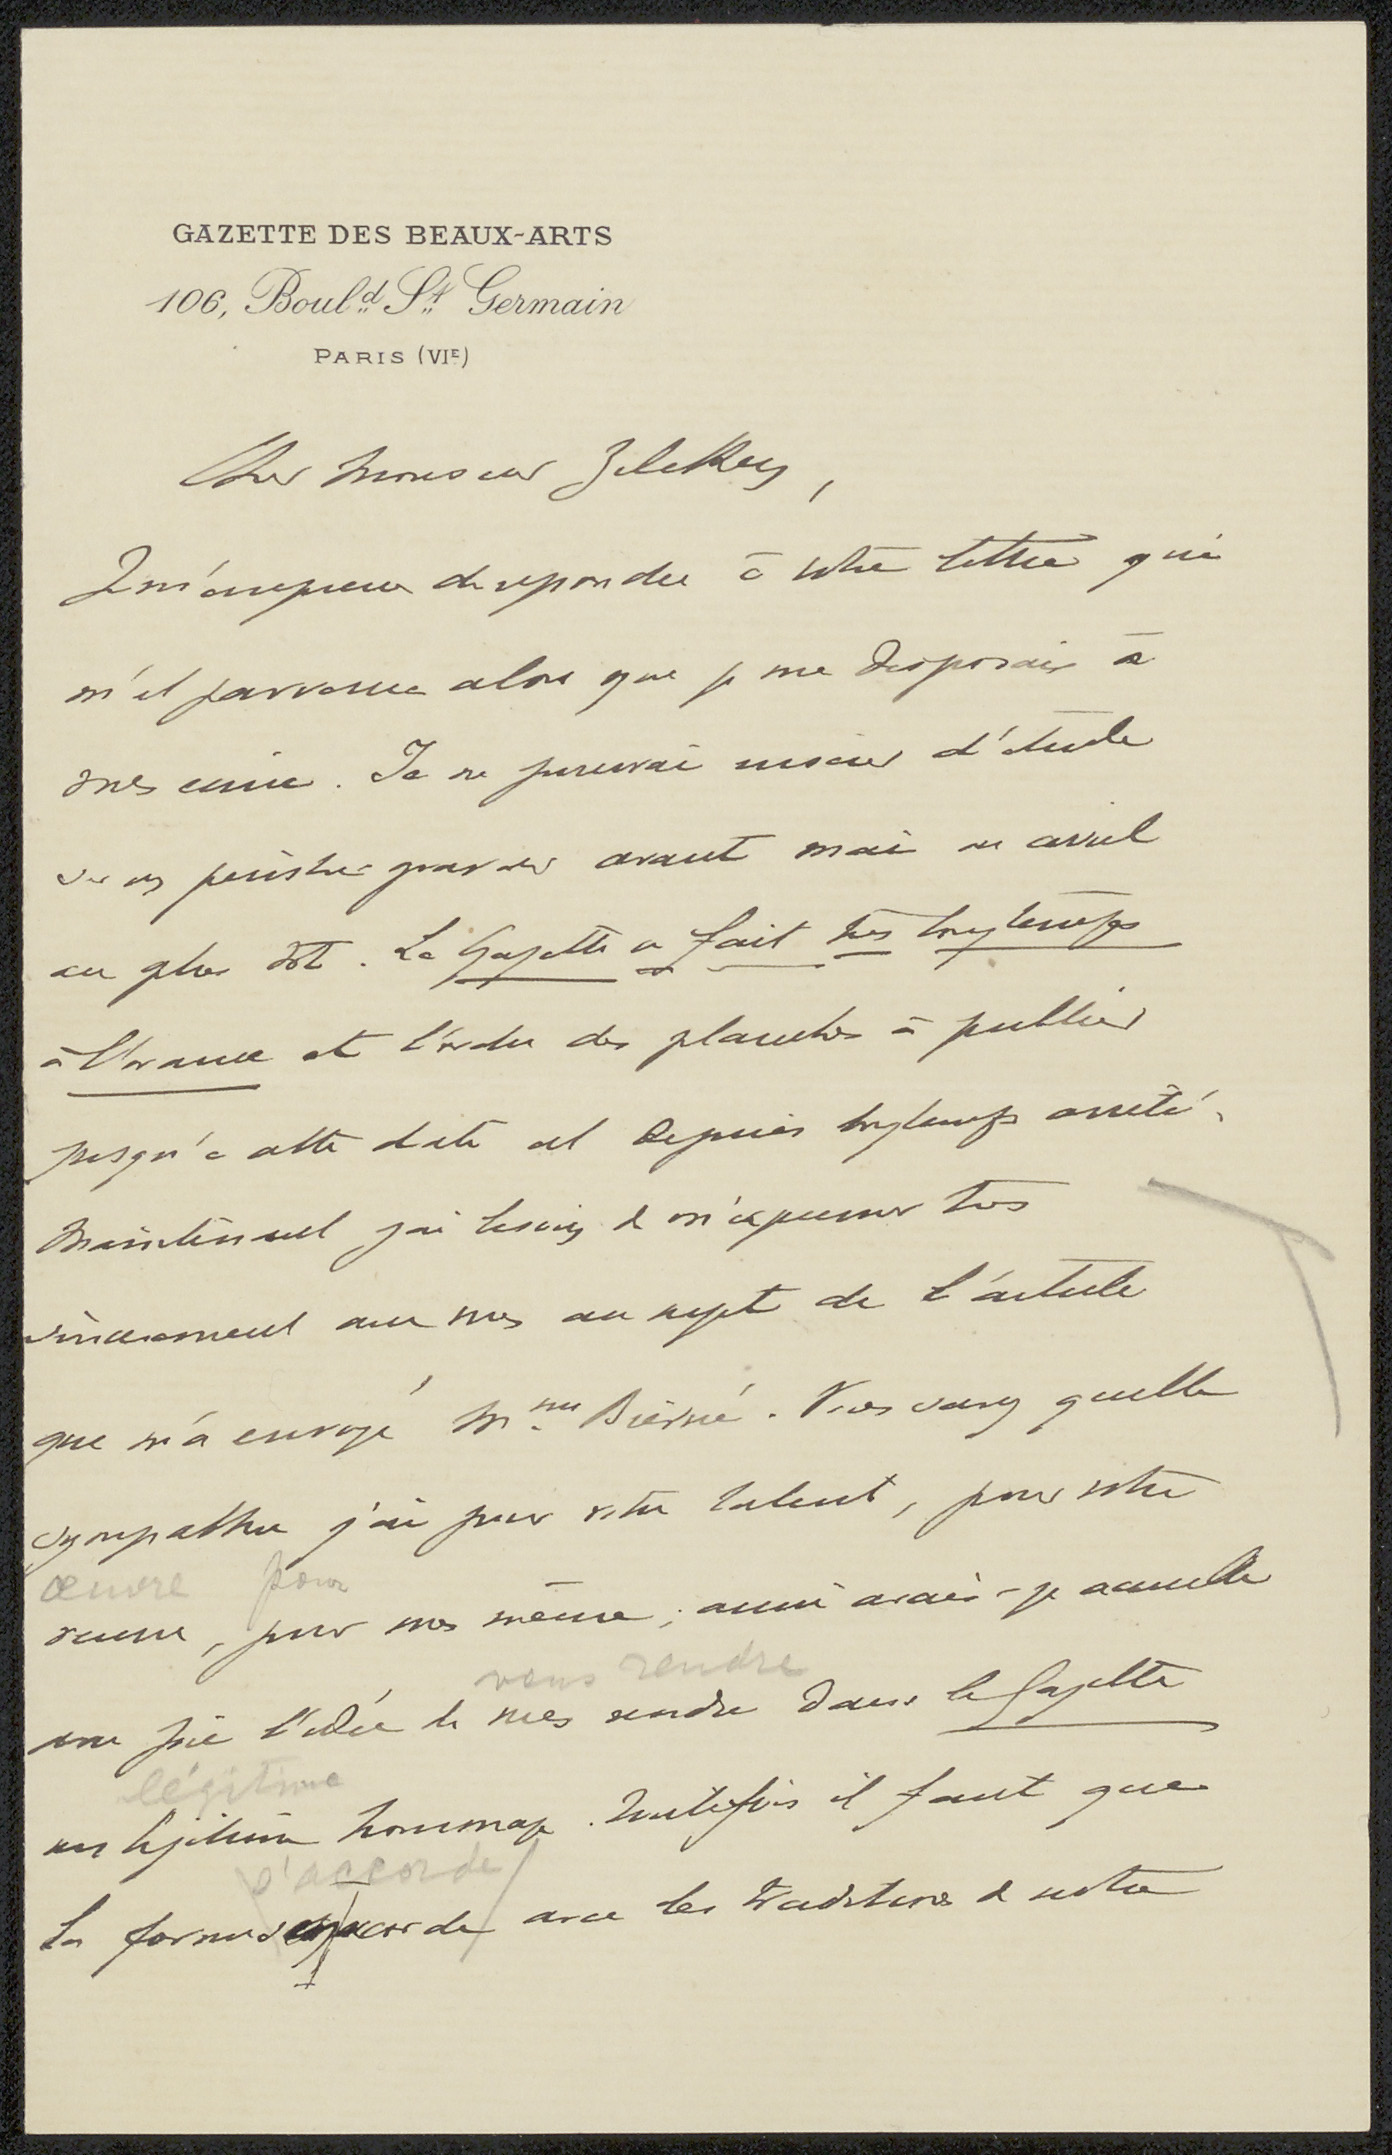 GAZETTE DES BEAUX-ARTS
106, Boul.d St. Germain
PARIS (VIE)
Cher Monsieur Zilcken,
Je m'empresse de répondre à votre lettre qui
m'est parvenue alors que je me disposais à
vous écrire. Je ne pourrai insérer l'étude
peintre graveur avant mai ou avril
au plus tôt. La Gazette se fait très longtemps
à l'avance et l'ordre des planches à publier
jusqu'à cette date est depuis longtemps arrêté.
Maintenant j'ai besoin de m'exprimer très
sincèrement avec vous au sujet de l'article
que m'a envoyé Mme Biermé. Vous savez quelle
sympathie j'ai pour votre talent, pour votre
œuvre pour
œuvre, pour vous même; aussi avais-je accueilli
vous rendre
avec joie l'idée de vous rendre dans la Gazette
légitime
un légitime hommage. Toutefois il faut que
s'accorde
la forme s'accorde avec les traditions de notre